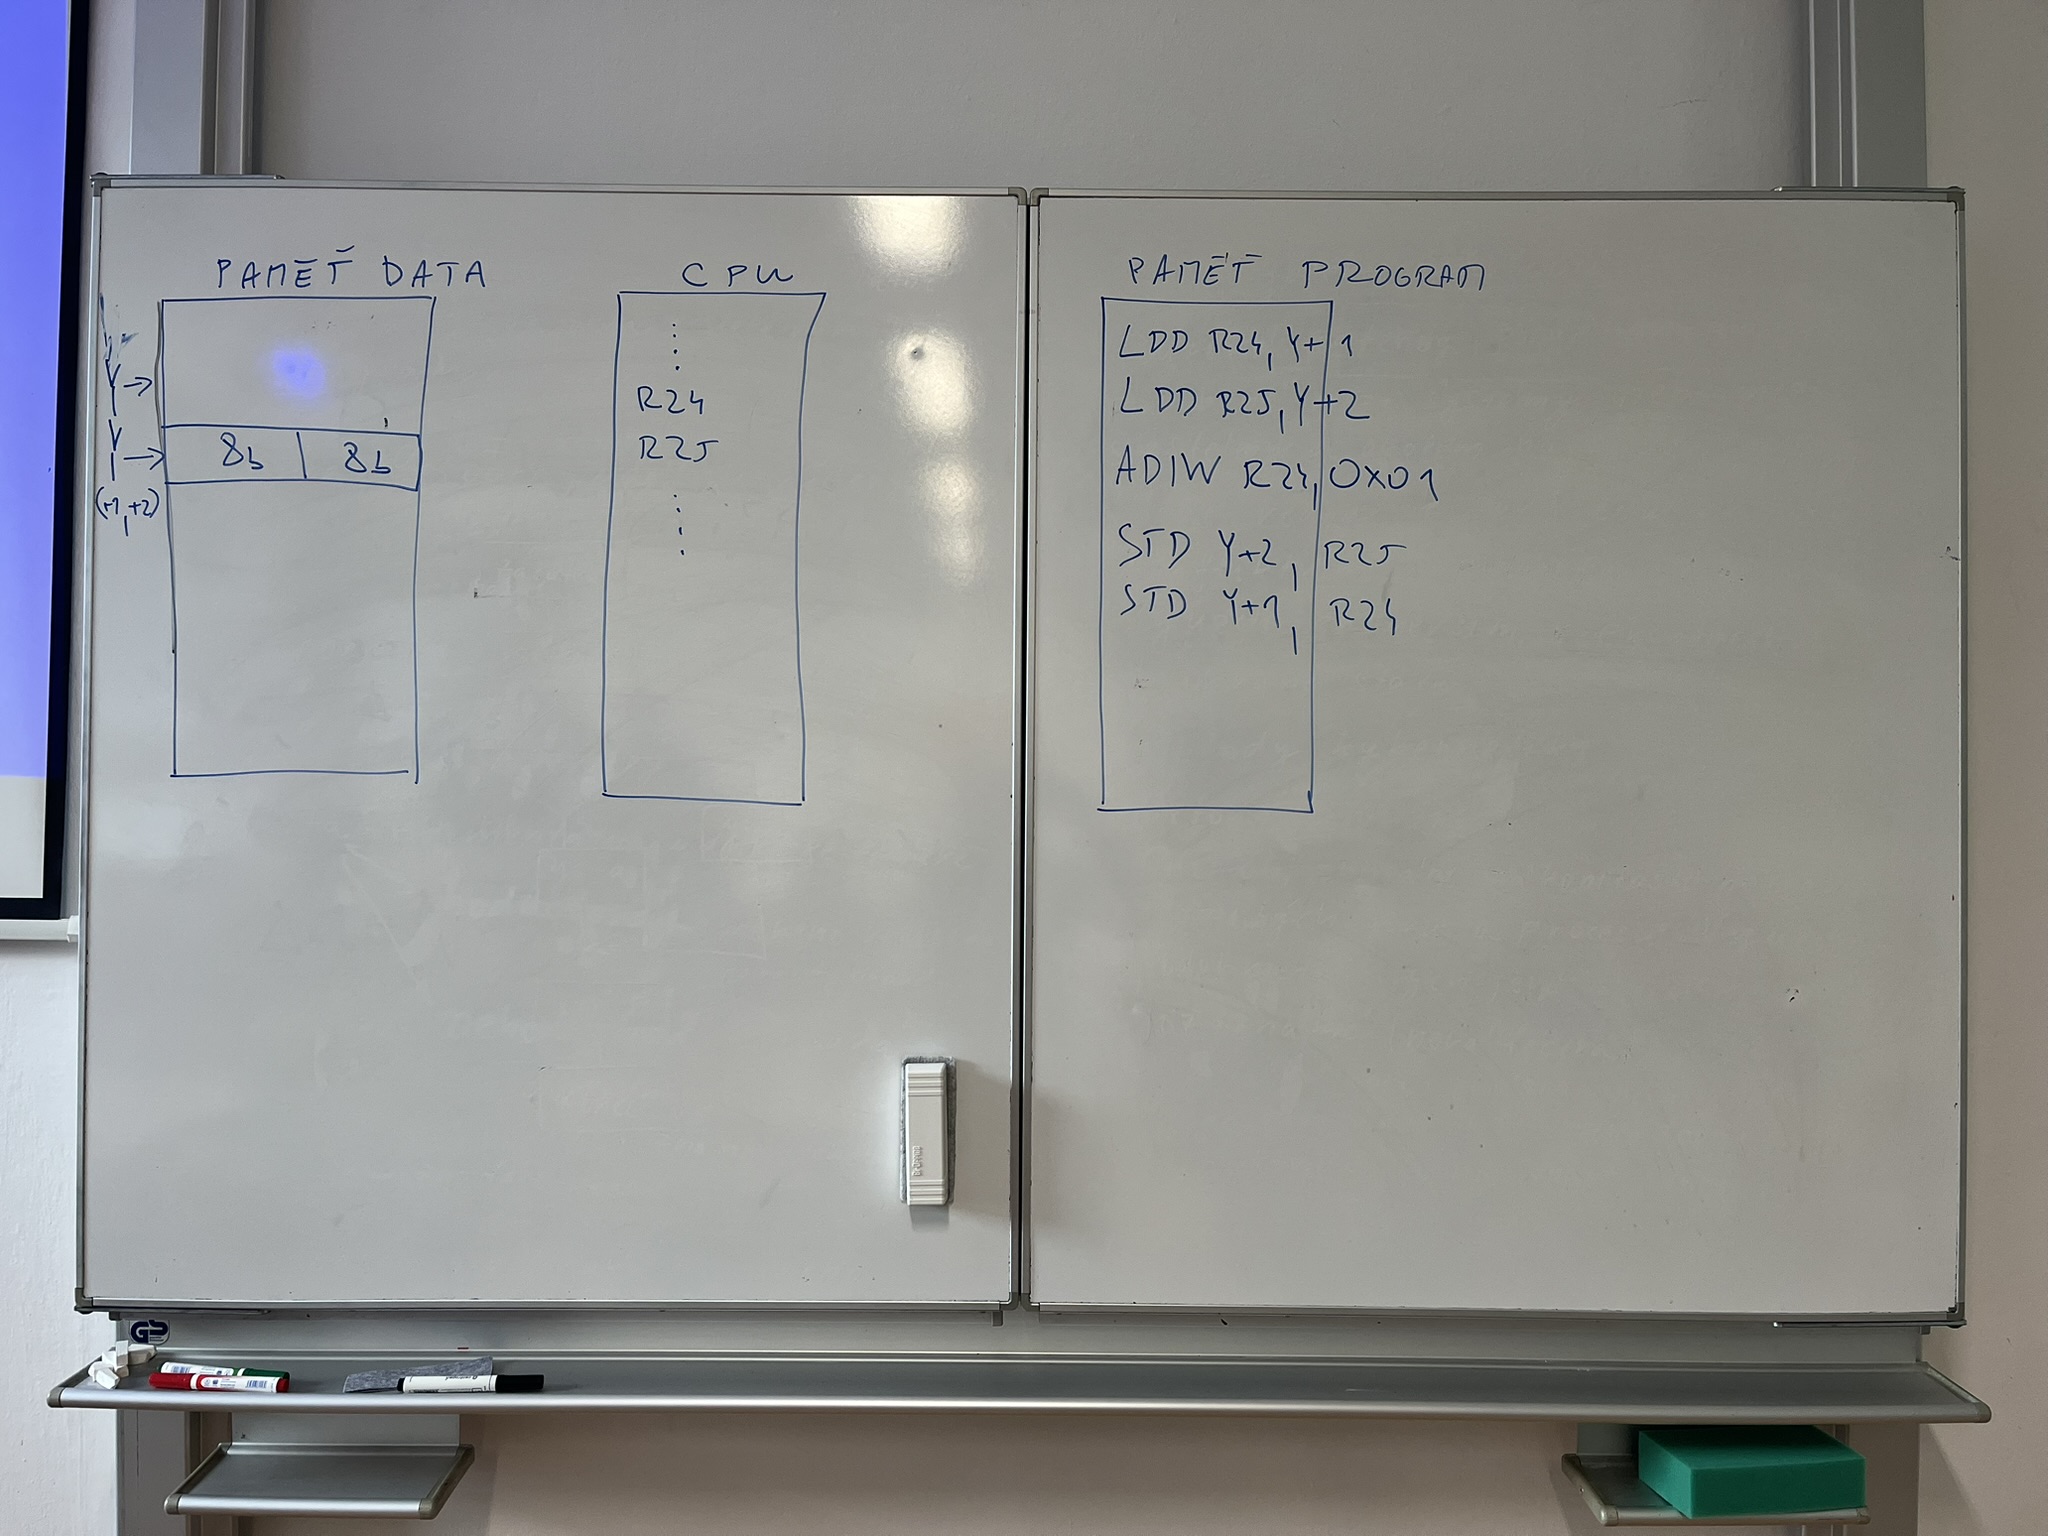 PAMĚŤ DATA
Y →
Y →
(+1, +2)
8b | 8b
CPU
R24
R25
PAMĚŤ PROGRAM
LDD R24, Y+1
LDD R25, Y+2
ADIW R24, 0x01
STD Y+2, R25
STD Y+1, R24